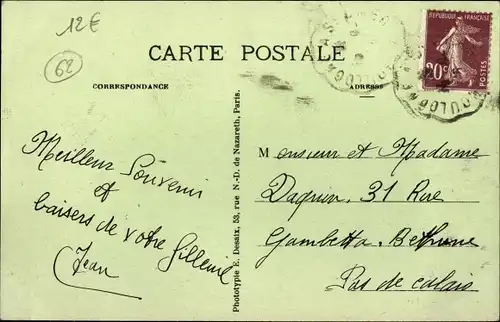 12€
62
CARTE POSTALE
CORRESPONDANCE
ADRESSE
RÉPUBLIQUE FRANÇAISE
20c
POSTES
BOULOGNE
Meilleur Souvenir
et
baisers de votre filleul
Jean
Phototypie E. Desaix, 53, rue N.-D. de Nazareth, Paris.
Monsieur et Madame
31 Rue
Gambetta. Bethune
Pas de calais